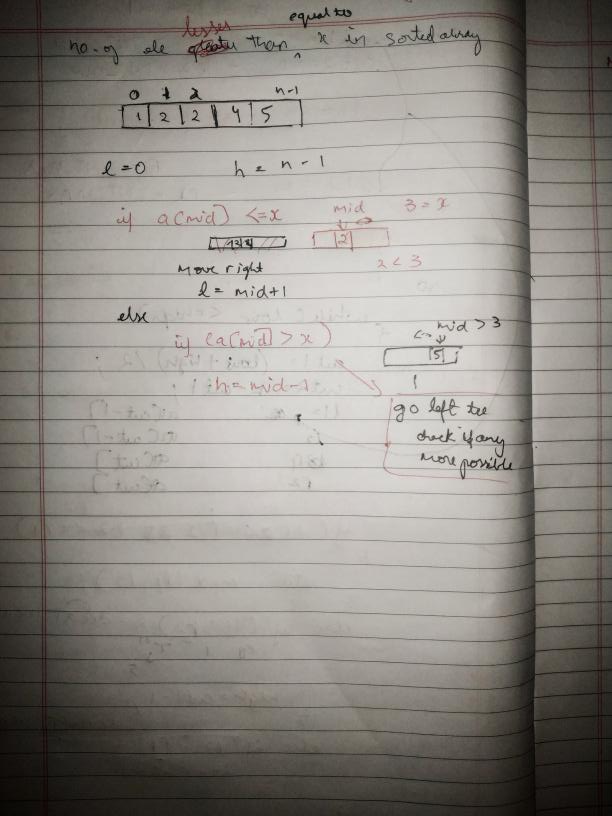 lesser equal to
no. of ele than x in sorted array
0 1 2 n-1
1 2 2 4 5
l = 0 h = n - 1
if a(mid) <= x mid 3 = x
2
move right 2 < 3
l = mid+1
else
if (a[mid] > x) mid > 3
5
h = mid-1
go left to
check if any
more possible